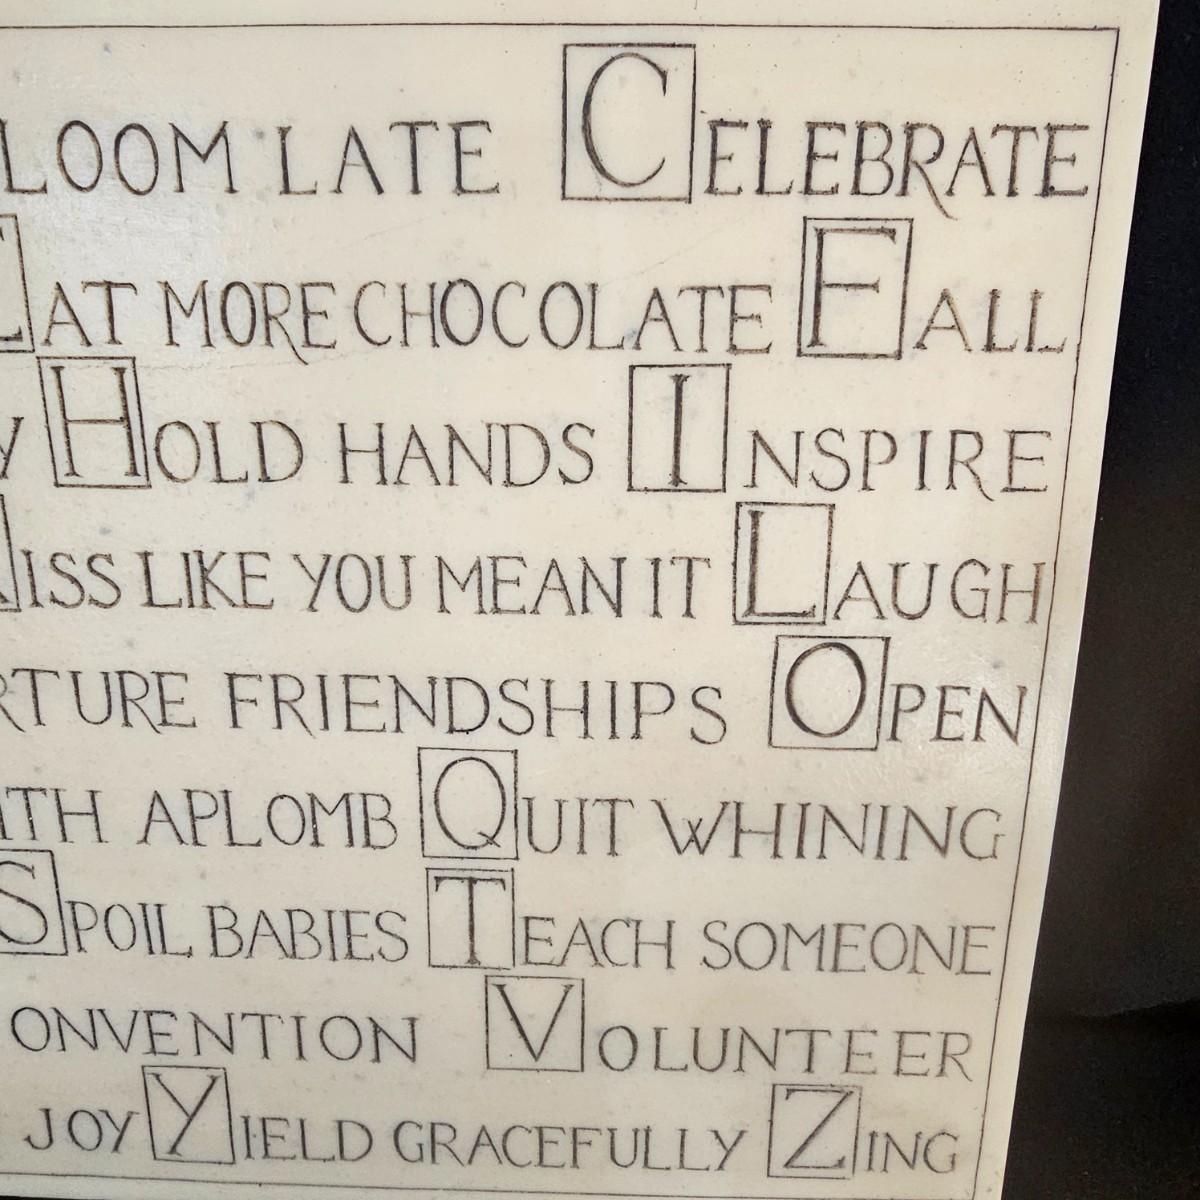 LOOM LATE CELEBRATE
EAT MORE CHOCOLATE FALL
Y HOLD HANDS INSPIRE
KISS LIKE YOU MEAN IT LAUGH
RTURE FRIENDSHIPS OPEN
ITH APLOMB QUIT WHINING
SPOIL BABIES TEACH SOMEONE
ONVENTION VOLUNTEER
JOY YIELD GRACEFULLY ZING